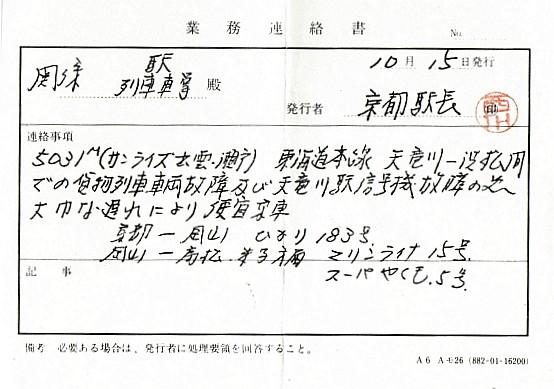 業務連絡書
No.
10月15日発行
関係 駅 列車車掌 殿
発行者 京都駅長 印
連絡事項
5031M(サンライズ出雲・瀬戸) 東海道本線 天竜川一浜松間
での貨物列車車両故障及び天竜川駅信号機故障の為
大巾な遅れにより便宜乗車
京都一岡山 ひかり183号
岡山一高松・米子 マリンライナ15号
記事
スーパやくも.5号
備考 必要ある場合は、発行者に処理要領を回答すること。
A6 A-モ26 (882-01-16200)